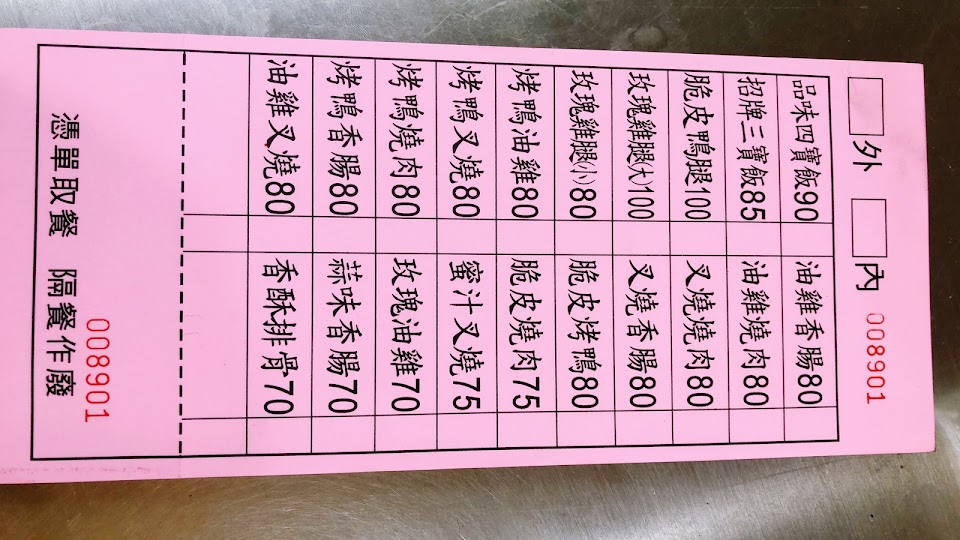 外 內 008901
品味四寶飯90 油雞香腸80
招牌三寶飯85 油雞燒肉80
脆皮鴨腿100 叉燒燒肉80
玫瑰雞腿(大)100 叉燒香腸80
玫瑰雞腿(小)80 脆皮烤鴨80
烤鴨油雞80 脆皮燒肉75
烤鴨叉燒80 蜜汁叉燒75
烤鴨燒肉80 玫瑰油雞70
烤鴨香腸80 蒜味香腸70
油雞叉燒80 香酥排骨70
008901
憑單取餐 隔餐作廢